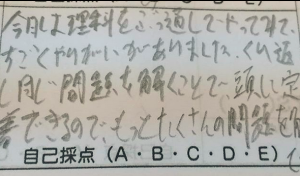 今日は理科を 通してやってみて、
すごくやりがいがありました。くり返
し同じ問題を解くことで頭に定
着できるので、もっとたくさんの問題を
自己採点（A・B・C・D・E）